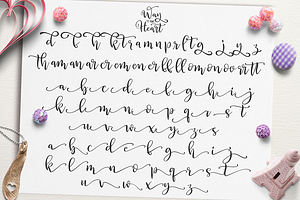 Way to the Heart
d l h k t r a m n p r l t g j y z
th am an ar er em en er ll ll om on ov or tt
a b c d e f g h i j
k l m n o p q r s t
u v w x y z
a b c d e f g h i j
k l m n o p q r s t
u v w x y z